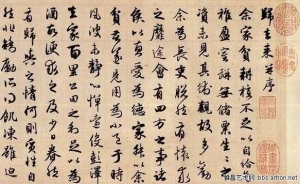 歸去來并序
余家貧耕植不足以自給
稚盈室缾無儲粟生生所
資未見其術親故多勸
余為長吏脫然有懷求
之靡途會有四方之事諸
侯以惠愛為德家叔以余
貧苦遂見用為小邑于時
風波未靜心憚遠役彭澤
去家百里公田之利足以為
酒故便求之及少日眷然
有歸與之情何則質性自
然非矯勵所得飢凍雖迫
雅昌艺术网 bbs.artron.net